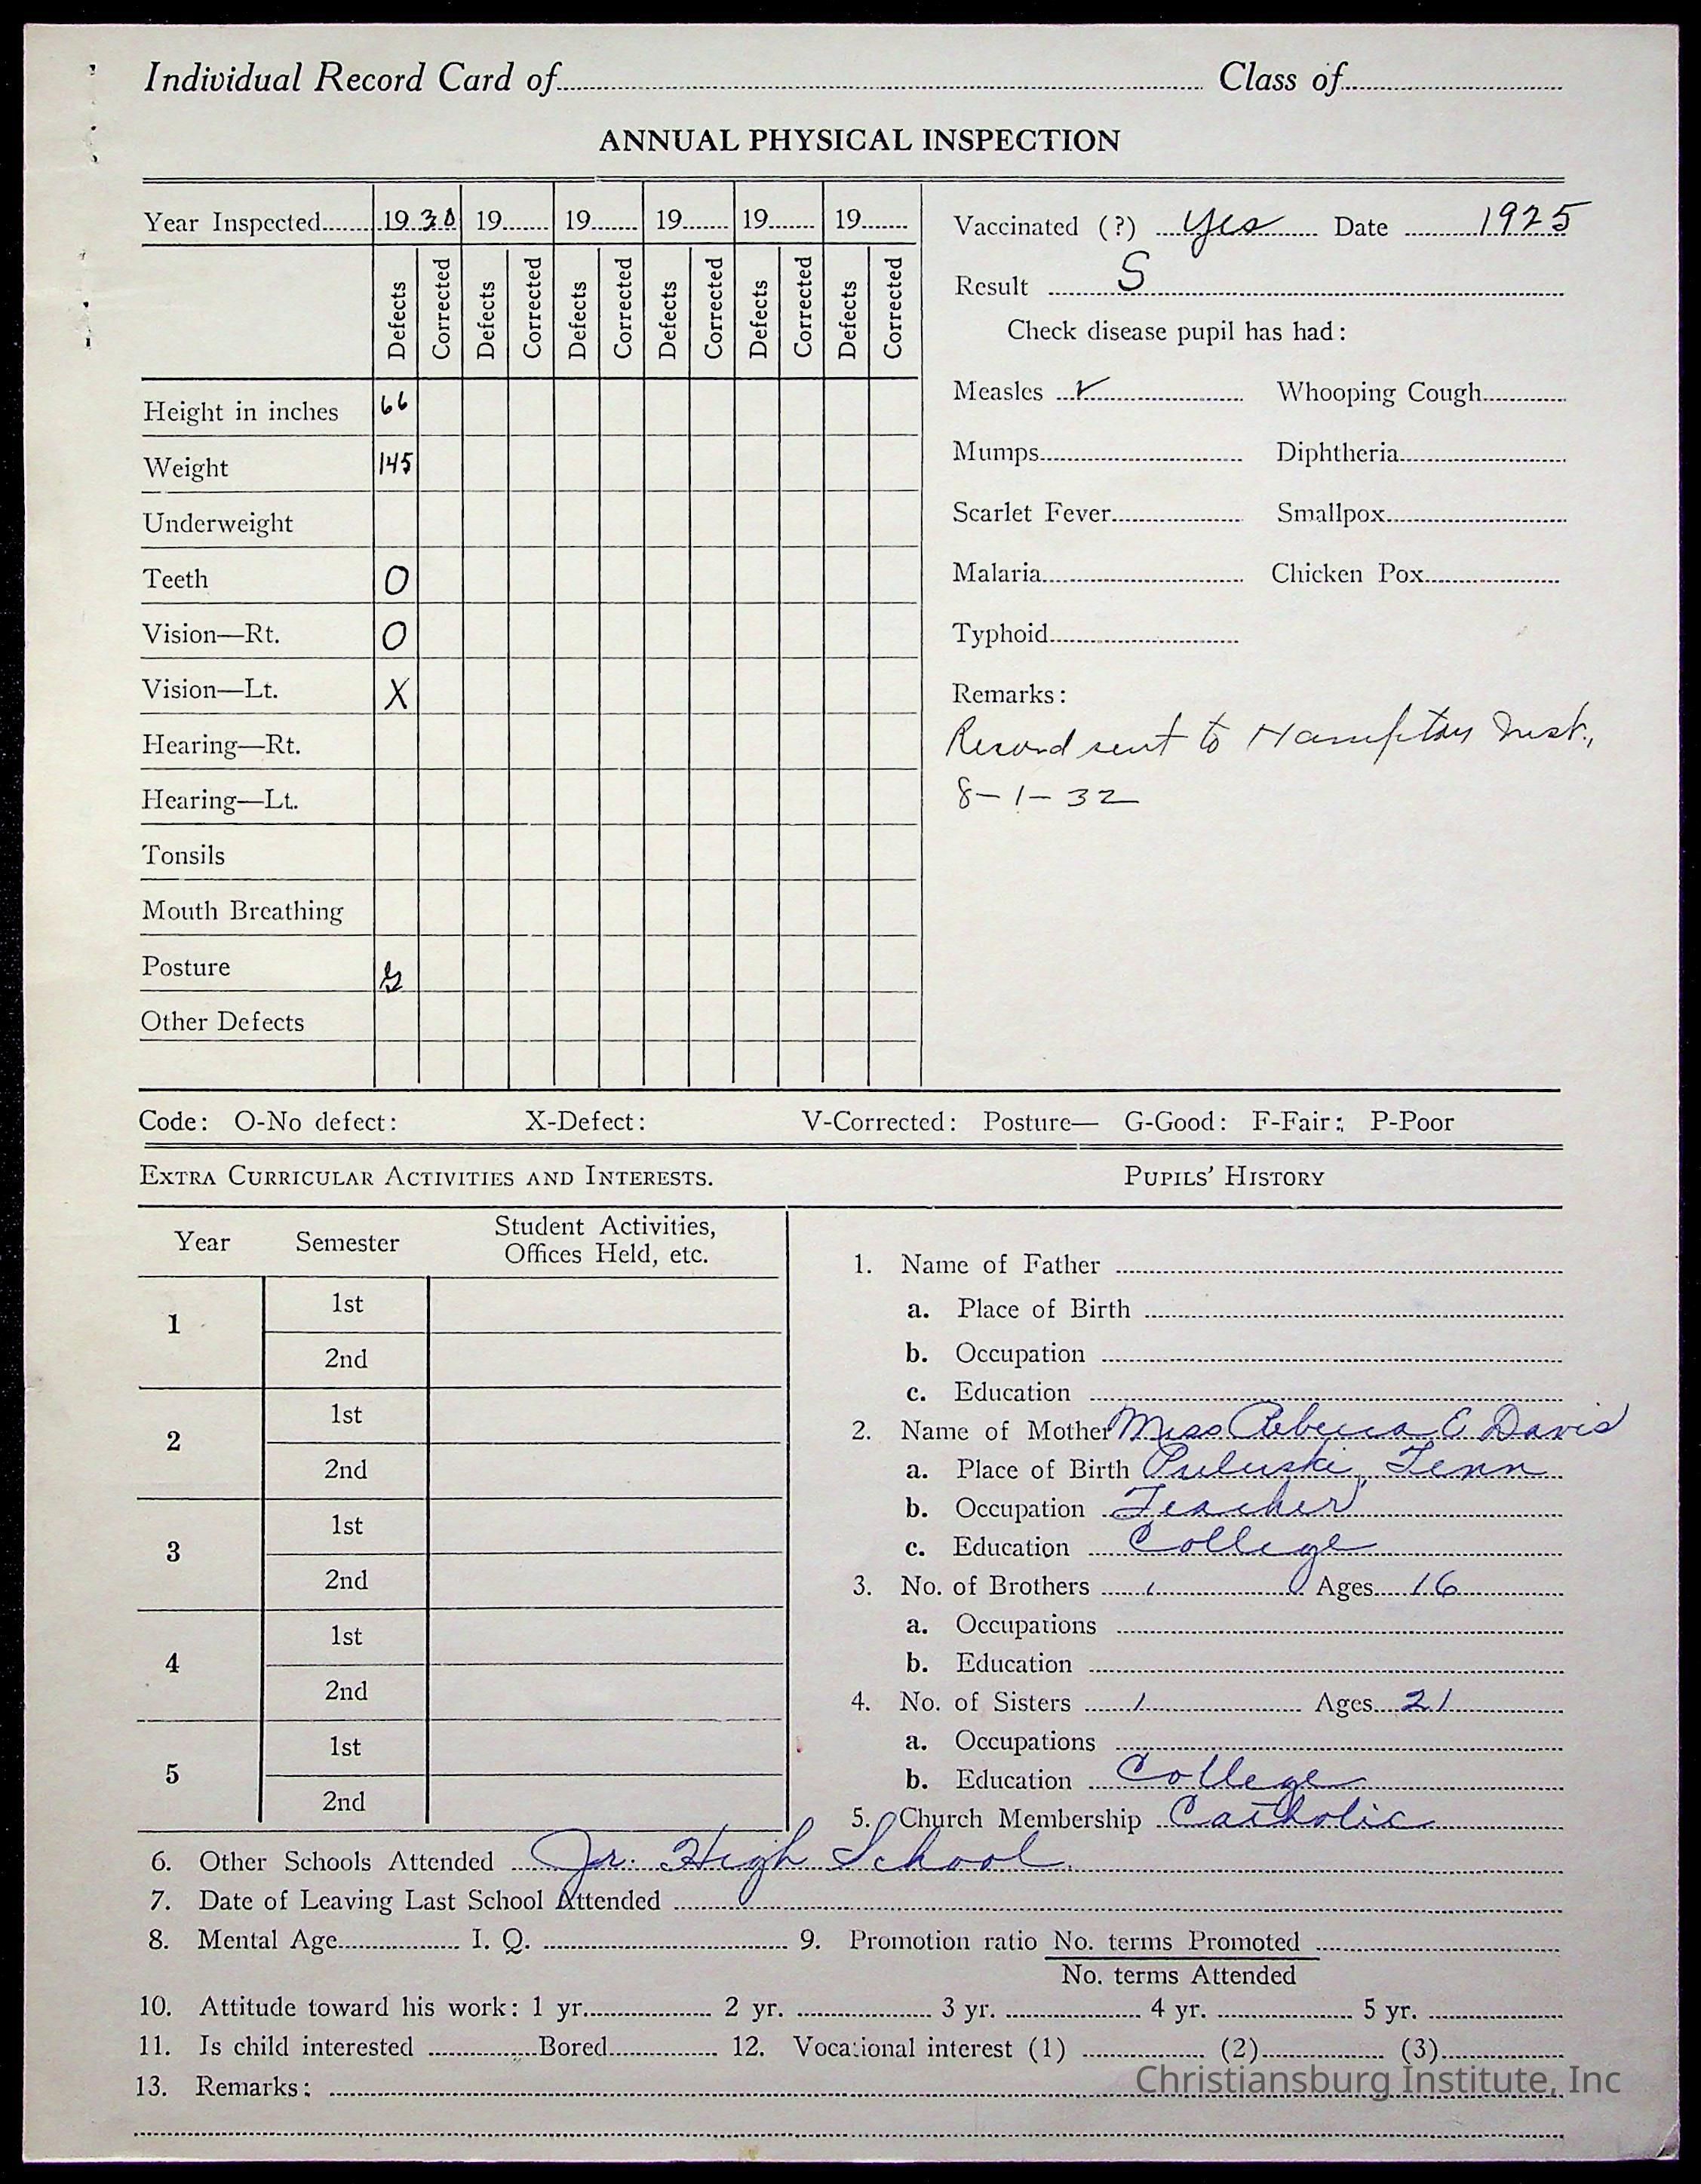 Individual Record Card of Class of
ANNUAL PHYSICAL INSPECTION
Year Inspected 1930 19 19 19 19 19
Defects Corrected Defects Corrected Defects Corrected Defects Corrected Defects Corrected Defects Corrected
Height in inches 66
Weight 145
Underweight
Teeth O
Vision—Rt. O
Vision—Lt. X
Hearing—Rt.
Hearing—Lt.
Tonsils
Mouth Breathing
Posture G
Other Defects
Vaccinated (?) yes Date 1925
Result S
Check disease pupil has had:
Measles ✓ Whooping Cough
Mumps Diphtheria
Scarlet Fever Smallpox
Malaria Chicken Pox
Typhoid
Remarks:
Record sent to Hampton Inst.,
8-1-32
Code: O-No defect: X-Defect: V-Corrected: Posture— G-Good: F-Fair: P-Poor
EXTRA CURRICULAR ACTIVITIES AND INTERESTS.
Year Semester Student Activities,
Offices Held, etc.
1 1st
2nd
2 1st
2nd
3 1st
2nd
4 1st
2nd
5 1st
2nd
PUPILS' HISTORY
1. Name of Father
a. Place of Birth
b. Occupation
c. Education
2. Name of Mother Miss Rebecca E Davis
a. Place of Birth Puluski, Tenn
b. Occupation Teacher
c. Education College
3. No. of Brothers 1 Ages 16
a. Occupations
b. Education
4. No. of Sisters 1 Ages 21
a. Occupations
b. Education College
5. Church Membership Catholic
6. Other Schools Attended Jr. High School
7. Date of Leaving Last School Attended
8. Mental Age I. Q. 9. Promotion ratio No. terms Promoted
No. terms Attended
10. Attitude toward his work: 1 yr. 2 yr. 3 yr. 4 yr. 5 yr.
11. Is child interested Bored 12. Vocational interest (1) (2) (3)
13. Remarks:
Christiansburg Institute, Inc